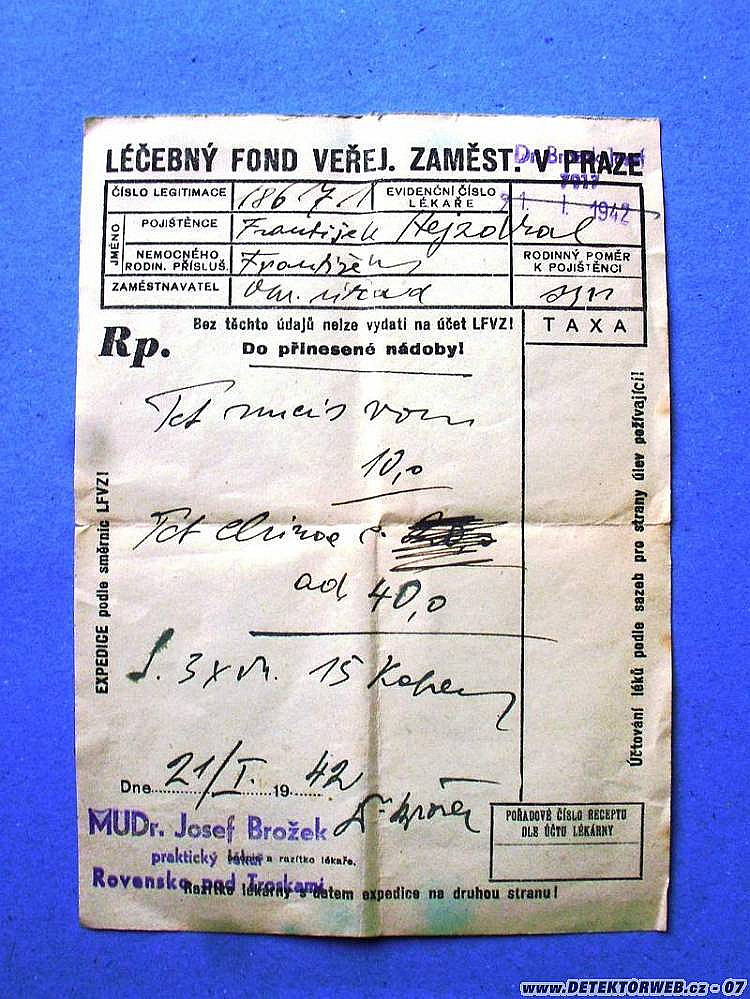 LÉČEBNÝ FOND VEŘEJ. ZAMĚST. V PRAZE
Dr. Brožek Josef
21. I. 1942
ČÍSLO LEGITIMACE 186171 EVIDENČNÍ ČÍSLO LÉKAŘE
JMÉNO
POJIŠTĚNCE František Hejzdral
NEMOCNÉHO RODIN. PŘÍSLUŠ. František
RODINNÝ POMĚR K POJIŠTĚNCI syn
ZAMĚSTNAVATEL
Rp.
Bez těchto údajů nelze vydati na účet LFVZ!
Do přinesené nádoby!
TAXA
Tct nucis vom
10,0
Tct chinae c.
ad 40,0
S. 3x 15 Kapek
EXPEDICE podle směrnic LFVZ!
Účtování léků podle sazeb pro strany úlev požívající!
Dne 21/I. 19 42
Dr Brožek
MUDr. Josef Brožek
praktický lékař a razítko lékaře.
Rovensko pod Troskami
Razítko lékárny s datem expedice na druhou stranu!
POŘADOVÉ ČÍSLO RECEPTU
DLE ÚČTU LÉKÁRNY
www.DETEKTORWEB.cz - 07